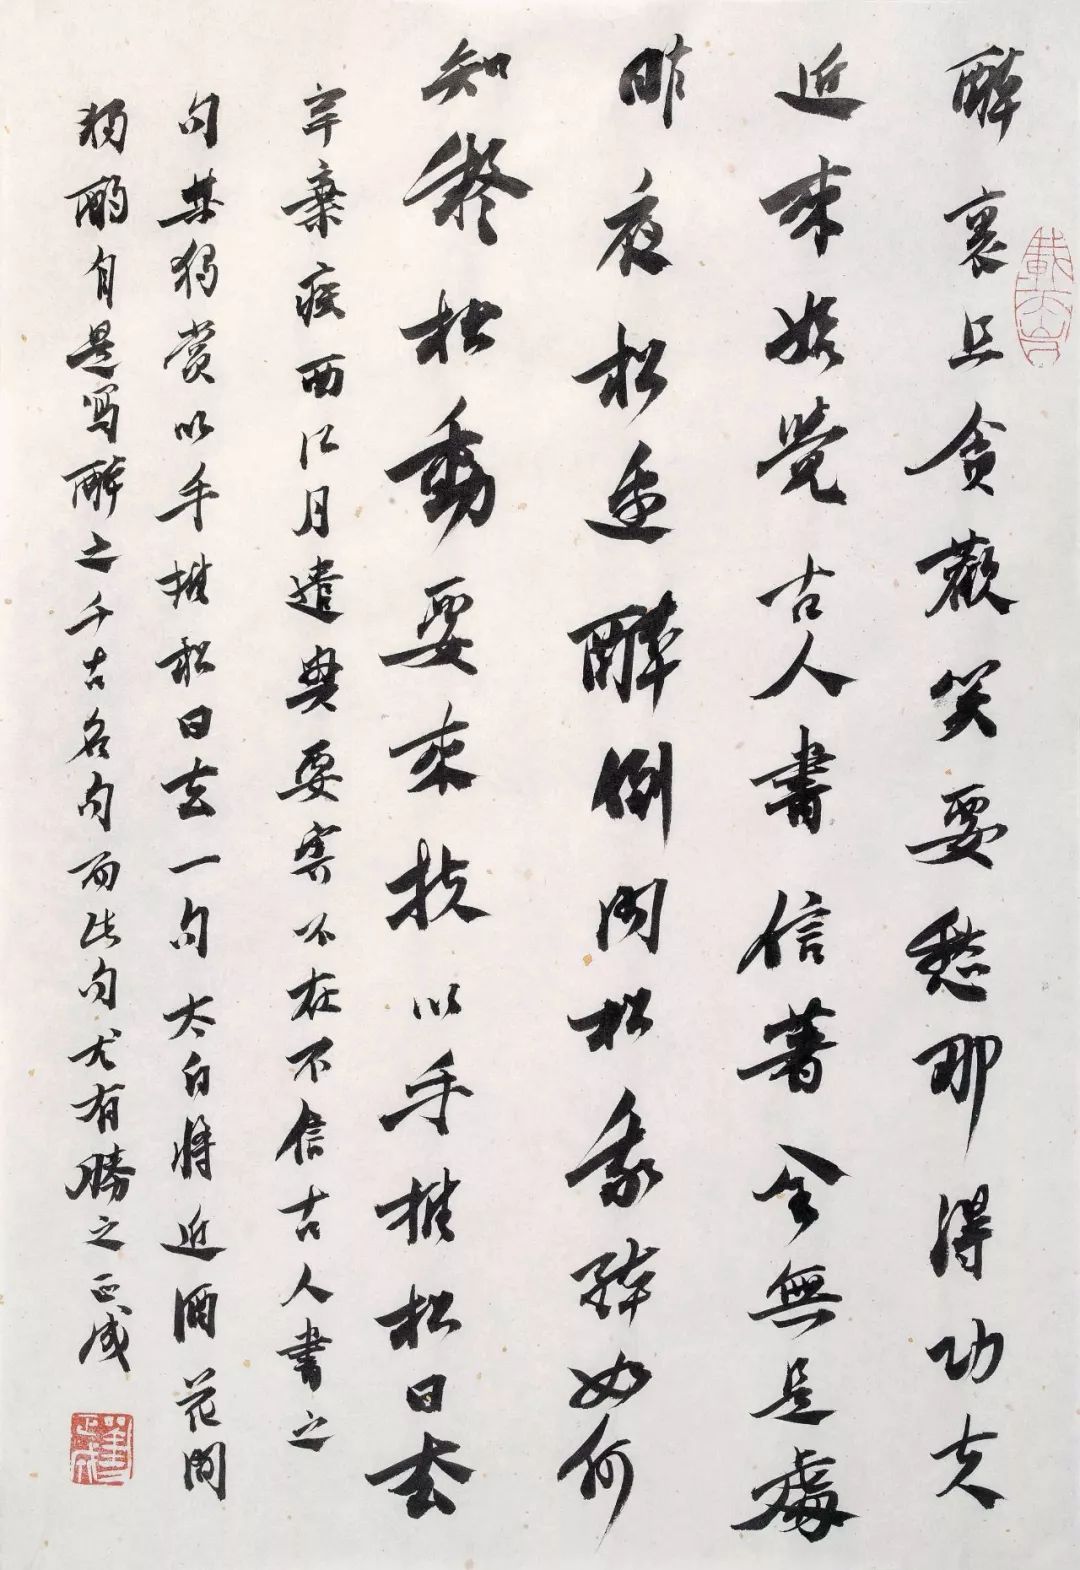 醉裏且貪歡笑要愁那得功夫
近來始覺古人書信著全無是處
昨夜松邊醉倒問松我醉如何
知疑松動要來扶以手推松曰去
辛棄疾西江月遣興要害不在不信古人書之
句某獨賞以手推松曰去一句太白將近酒花間
獨酌自是寫醉之千古名句而此句尤有勝之正成